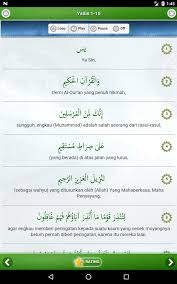 1:46
Yasin 1-10
Loop Play Pause Off
يس
Ya Sin.
وَالْقُرْآنِ الْحَكِيمِ
Demi Al-Qur'an yang penuh hikmah,
إِنَّكَ لَمِنَ الْمُرْسَلِينَ
sungguh, engkau (Muhammad) adalah salah seorang dari rasul-rasul,
عَلَىٰ صِرَاطٍ مُسْتَقِيمٍ
(yang berada) di atas jalan yang lurus,
تَنْزِيلَ الْعَزِيزِ الرَّحِيمِ
(sebagai wahyu) yang diturunkan oleh (Allah) Yang Mahaperkasa, Maha
Penyayang,
لِتُنْذِرَ قَوْمًا مَا أُنْذِرَ آبَاؤُهُمْ فَهُمْ غَافِلُونَ
agar engkau memberi peringatan kepada suatu kaum yang nenek moyangnya
belum pernah diberi peringatan, karena itu mereka lalai.
RATING